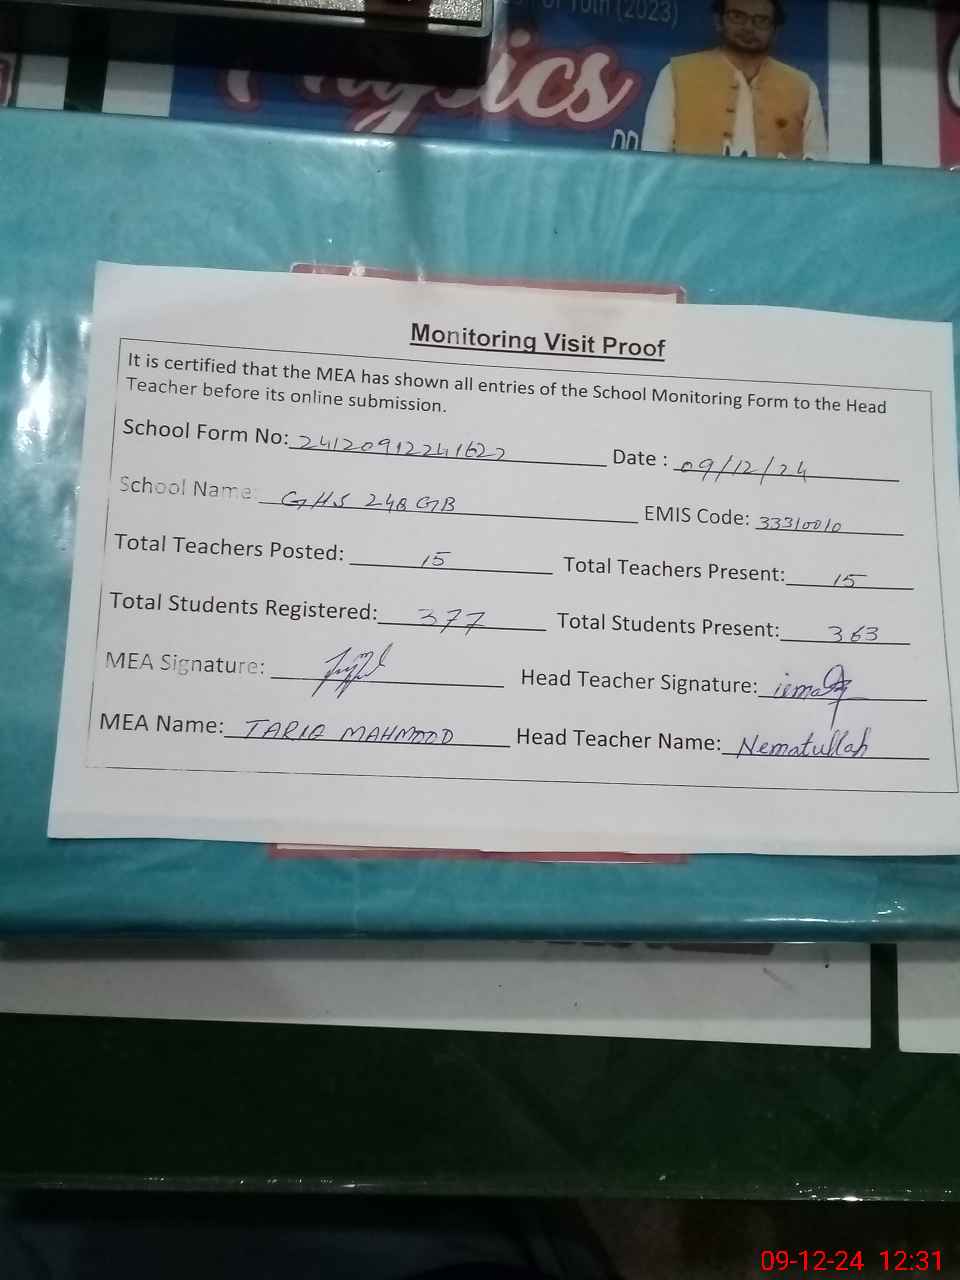 of 10th (2023)
Physics
Monitoring Visit Proof
It is certified that the MEA has shown all entries of the School Monitoring Form to the Head
Teacher before its online submission.
School Form No: 24120912241622 Date : 09/12/24
School Name: GHS 248 GB EMIS Code: 33310010
Total Teachers Posted: 15 Total Teachers Present: 15
Total Students Registered: 377 Total Students Present: 363
MEA Signature: Head Teacher Signature:
MEA Name: TARIQ MAHMOOD Head Teacher Name: Nematullah
09-12-24 12:31